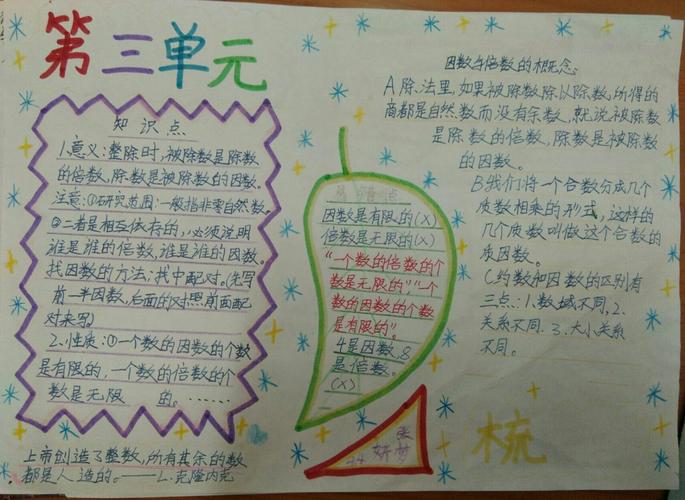 第三单元
知识点
1.意义:整除时,被除数是除数
的倍数,除数是被除数的因数。
注意:①研究范围:一般指非零自然数。
②二者是相互依存的,必须说明
谁是谁的倍数,谁是谁的因数。
找因数的方法:找中配对。(先写
前一半因数,后面的对照前面配
对来写)
2.性质:①一个数的因数的个数
是有限的,一个数的倍数的个
数是无限 的。……
上帝创造了整数,所有其余的数
都是人造的。——L.克隆内克
易 点
因数是有限的(×)
倍数是无限的(×)
“一个数的倍数的个
数是无限的”“一个
数的因数的个数
是有限的”。
4是因数,8
是倍数。
(×)
因数与倍数的概念:
A除法里,如果被除数除以除数,所得的
商都是自然数而没有余数,就说被除数
是除数的倍数,除数是被除数
的因数。
B我们将一个合数分成几个
质数相乘的形式,这样的
几个质数叫做这个合数的
质因数。
C约数和因数的区别有
三点:1.数域不同,2.
关系不同.3.大小关系
不同。
张
妍梦
梳